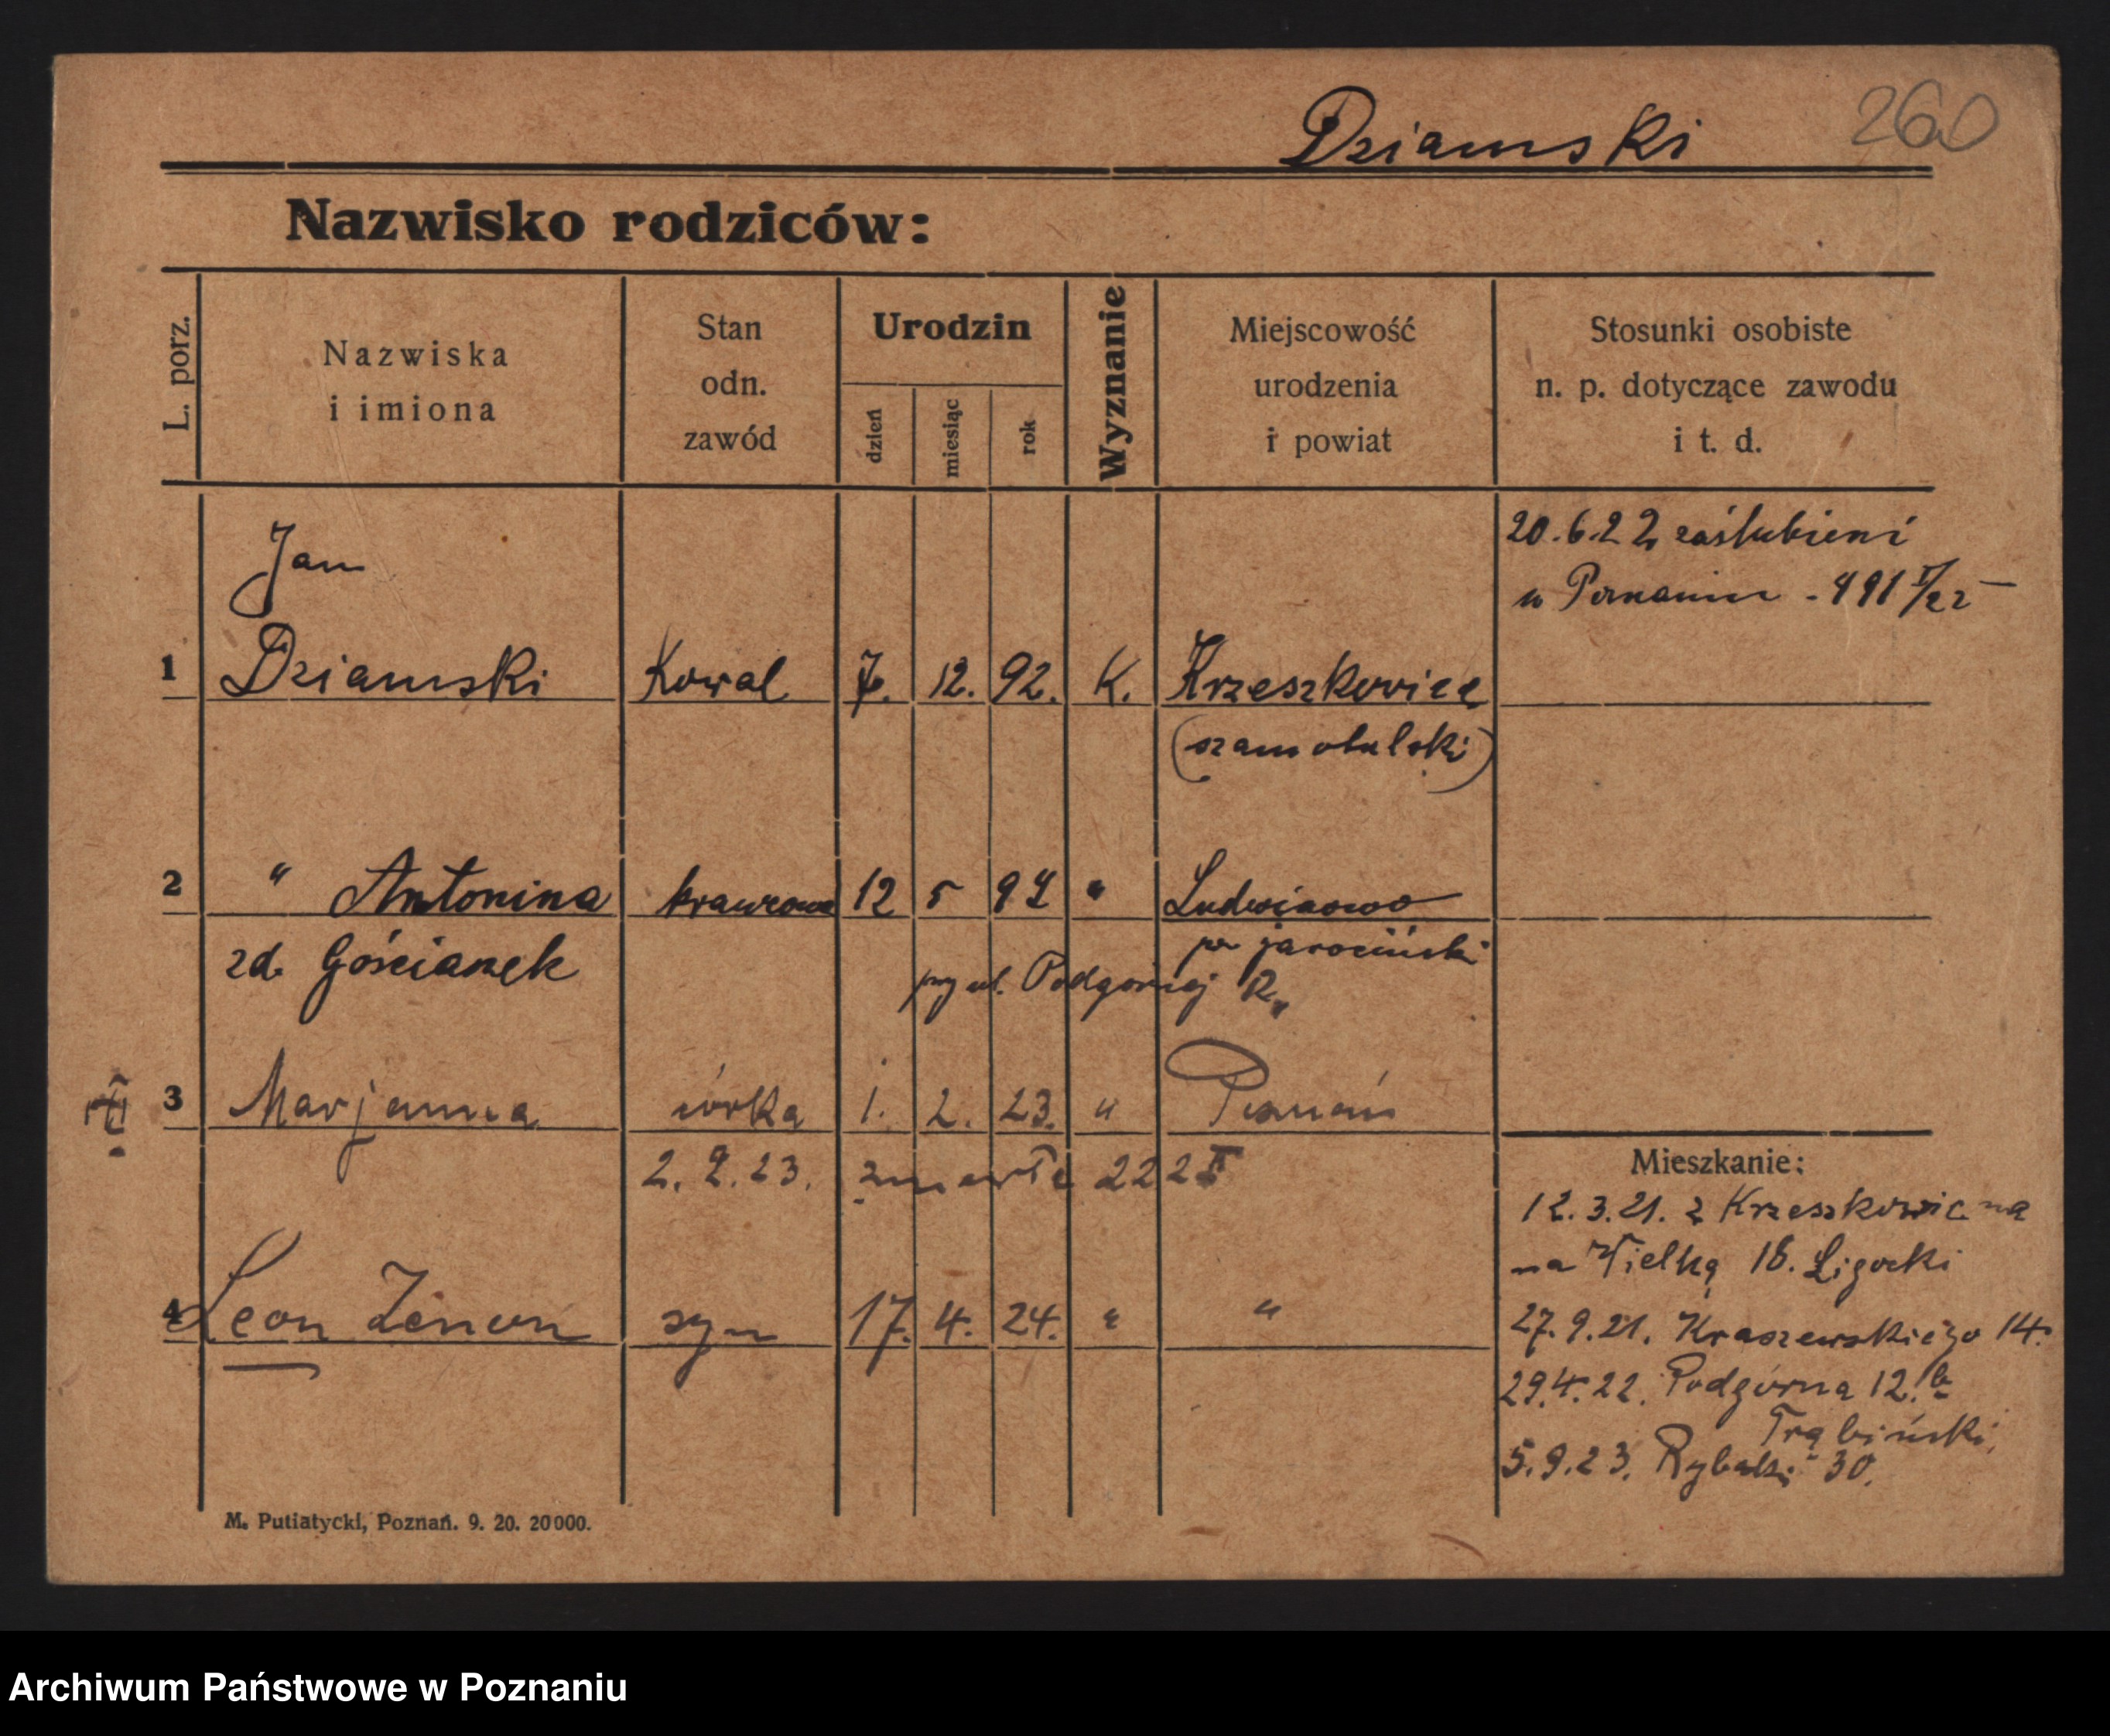 Dziamski 260
Nazwisko rodziców:
L. porz.
Nazwiska
i imiona
Stan
odn.
zawód
Urodzin
dzień
miesiąc
rok
Wyznanie
Miejscowość
urodzenia
i powiat
Stosunki osobiste
n. p. dotyczące zawodu
i t. d.
20.6.22 zaślubieni
w Poznaniu - 491 I/22 -
Jan
1 Dziamski Kowal 7. 12. 92. K. Krzeszkowice
(szamotulski)
2 " Antonina krawcowa 12 5 97 " Ludwinowo
zd. Gościanek
pow jarociński
przy ul. Podgórnej
3 Marjanna córka 1. 2. 23. " Poznań
2. 2. 23. zmarła 222 II
4 Leon Zenon syn 17. 4. 24. " "
Mieszkanie:
12.3.21. z Krzeszkowic na
na Wielką 18. Ligocki
27.9.21. Kraszewskiego 14.
29.4.22. Podgórna 12.b
Trąbiński
5.9.23. Rybaki 30.
M. Putiatycki, Poznań. 9. 20. 20000.
Archiwum Państwowe w Poznaniu